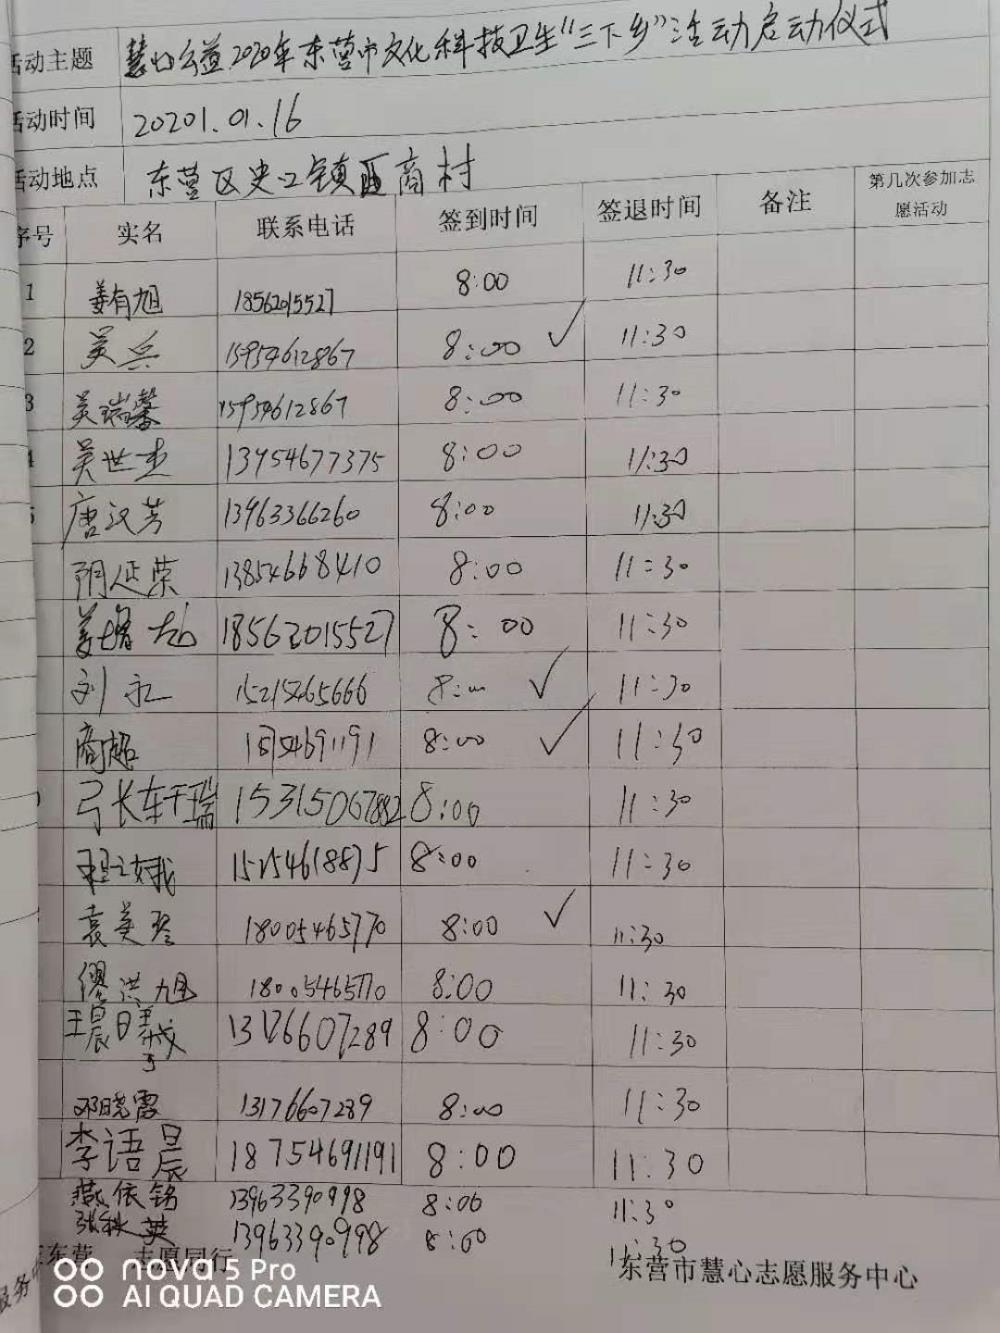 活动主题 慧心公益2020年东营市文化科技卫生"三下乡"活动启动仪式
活动时间 20201.01.16
活动地点 东营区史口镇西商村
序号 实名 联系电话 签到时间 签退时间 备注 第几次参加志愿活动
1 姜有旭 18562015527 8:00 11:30
2 吴兵 15954612867 8:00 ✓ 11:30
3 吴瑞馨 15954612867 8:00 11:30
4 吴世杰 13954677375 8:00 11:30
5 唐汉芳 13963366260 8:00 11:30
阴延荣 13854668410 8:00 11:30
姜增 18562015527 8:00 11:30
刘永 15215465666 8:00 ✓ 11:30
商超 8:00 ✓ 11:30
张轩瑞 15315067882 8:00 11:30
程文娥 8:00 11:30
袁美琴 18005465770 8:00 ✓ 11:30
缪洪旭 18005465770 8:00 11:30
王晨曦 13176607289 8:00 11:30
邓晓霞 13176607289 8:00 11:30
李语晨 18754691191 8:00 11:30
燕依铭 13963390998 8:00 11:30
张秋英 13963390998 8:00 11:30
东营 志愿同行 东营市慧心志愿服务中心
服务
nova 5 Pro
AI QUAD CAMERA